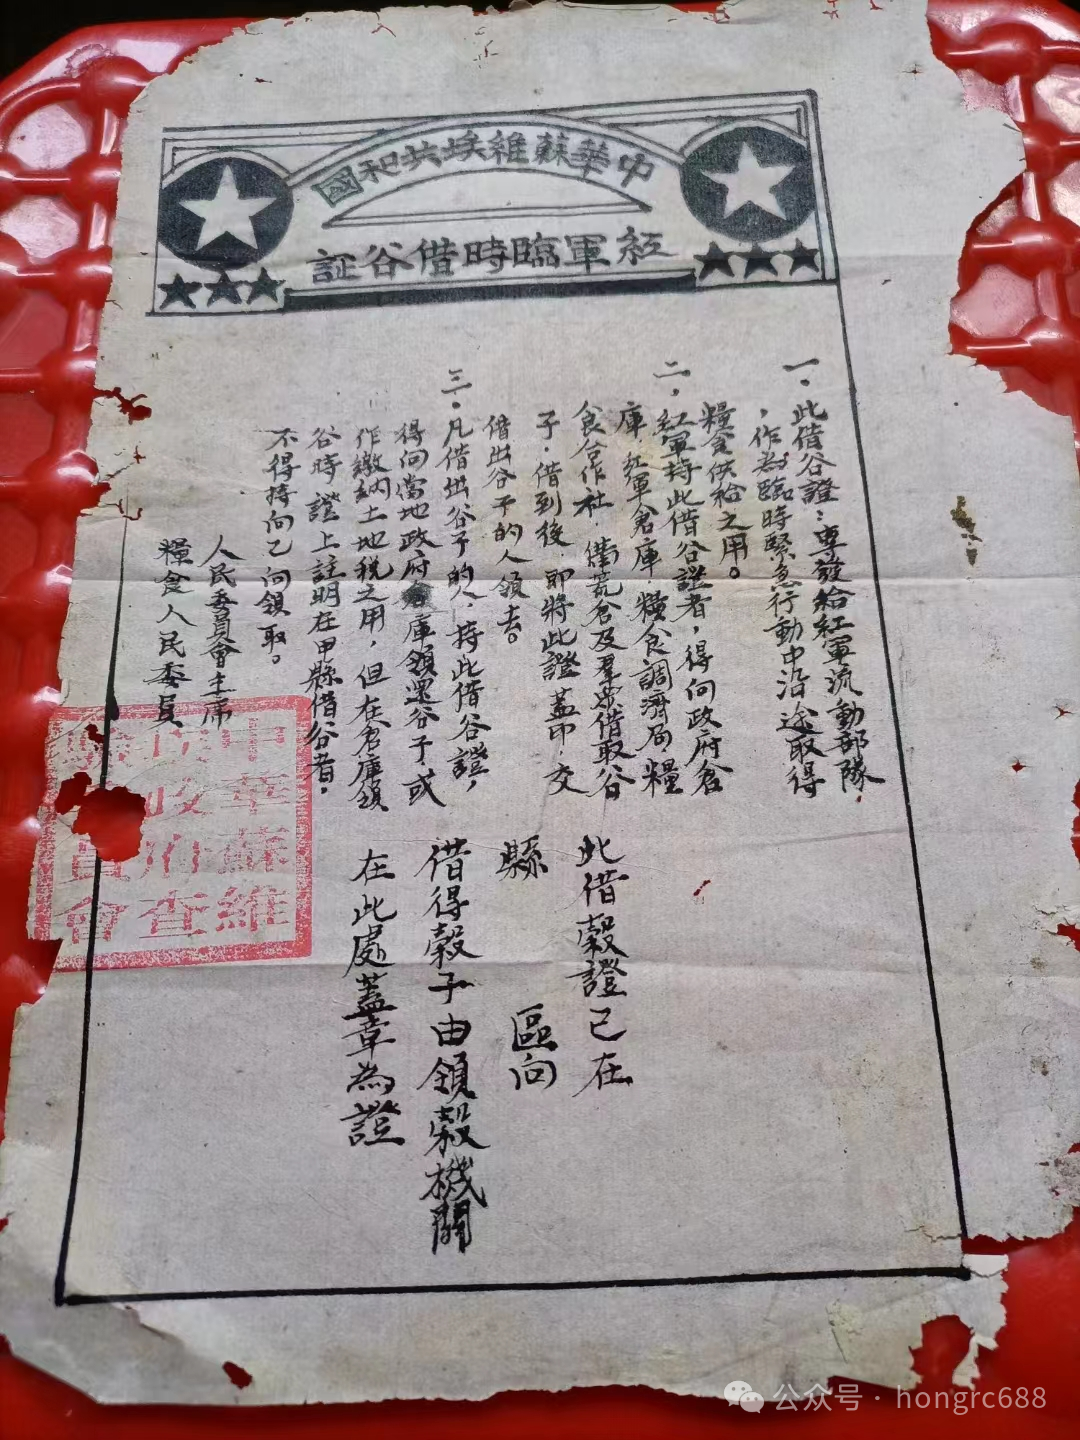 中華蘇維埃共和國
紅軍臨時借谷証
一．此借谷證：專發給紅軍流動部隊．
，作為臨時緊急行動中沿途取得
糧食供給之用。
二．紅軍持此借谷證者，得向政府倉
庫 紅軍倉庫 糧食調濟局 糧
食合作社．備荒倉及羣眾借取谷
子．借到後．即將此證蓋印．交
借出谷子的人領去。
三．凡借出谷子的人，持此借谷證，
得向當地政府倉庫領還谷子，或
作繳納土地稅之用，但在倉庫領
谷時 證上註明在甲縣借谷者．
不得持向乙向領取。
人民委員會主席
糧食人民委員
此借穀證已在
縣 區向
借得穀子由領穀機關
在此處蓋章為證
中華蘇維
政府查
會
公众号 · hongrc688